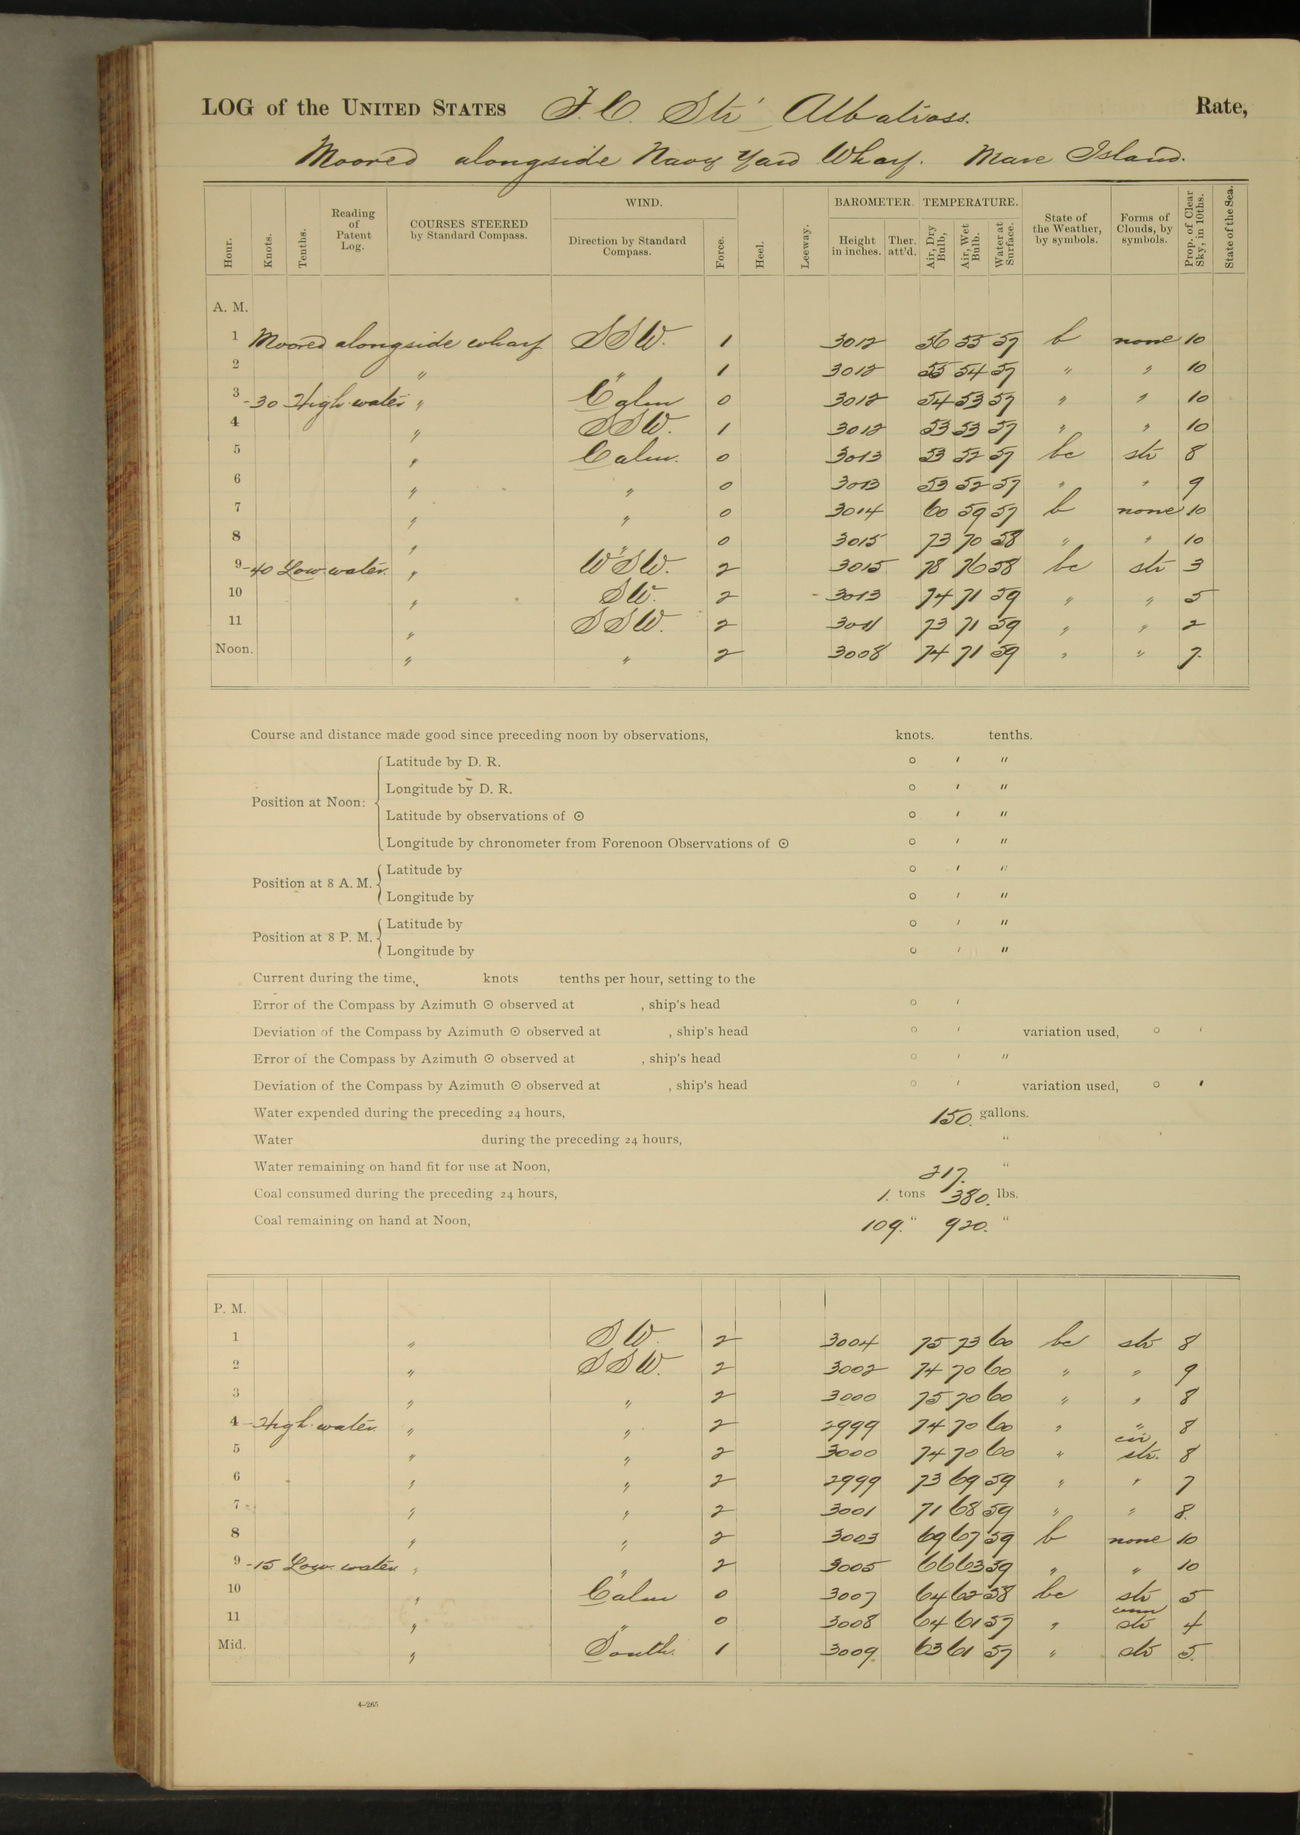 LOG of the UNITED STATES F. C. Str Albatross. Rate,
Moored alongside Navy Yard Wharf. Mare Island.
Hour. Knots. Tenths. Reading of Patent Log. COURSES STEERED by Standard Compass. WIND. Direction by Standard Compass. Force. Heel. Leeway. BAROMETER. Height in inches. Ther. att'd. TEMPERATURE. Air, Dry Bulb, Air, Wet Bulb. Water at Surface. State of the Weather, by symbols. Forms of Clouds, by symbols. Prop. of Clear Sky, in 10ths. State of the Sea.
A. M.
1 Moored alongside wharf SSW. 1 3012 56 55 57 b none 10
2 " " 1 3012 55 54 57 " " 10
3 -30 High water " Calm 0 3012 54 53 57 " " 10
4 " SSW. 1 3012 53 53 57 " " 10
5 " Calm. 0 3013 53 52 57 bc str 8
6 " " 0 3013 53 52 57 " " 9
7 " " 0 3014 60 59 57 b none 10
8 " " 0 3015 73 70 58 " " 10
9 -40 Low water. " WSW. 2 3015 78 76 58 bc str 3
10 " SW. 2 3013 74 71 59 " " 5
11 " SSW. 2 3011 73 71 59 " " 2
Noon. " " 2 3008 74 71 59 " " 7.
Course and distance made good since preceding noon by observations, knots. tenths.
Position at Noon: Latitude by D. R. ° ′ ″
Longitude by D. R. ° ′ ″
Latitude by observations of ☉ ° ′ ″
Longitude by chronometer from Forenoon Observations of ☉ ° ′ ″
Position at 8 A. M. Latitude by ° ′ ″
Longitude by ° ′ ″
Position at 8 P. M. Latitude by ° ′ ″
Longitude by ° ′ ″
Current during the time, knots tenths per hour, setting to the
Error of the Compass by Azimuth ☉ observed at , ship's head ° ′
Deviation of the Compass by Azimuth ☉ observed at , ship's head ° ′ variation used, ° ′
Error of the Compass by Azimuth ☉ observed at , ship's head ° ′ ″
Deviation of the Compass by Azimuth ☉ observed at , ship's head ° ′ variation used, ° ′
Water expended during the preceding 24 hours, 150. gallons.
Water during the preceding 24 hours, "
Water remaining on hand fit for use at Noon, 217. "
Coal consumed during the preceding 24 hours, 1. tons 380. lbs.
Coal remaining on hand at Noon, 109. " 920. "
P. M.
1 " SW. 2 3004 75 73 60 bc str 8
2 " SSW. 2 3002 74 70 60 " " 9
3 " " 2 3000 75 70 60 " " 8
4 - High water. " " 2 2999 74 70 60 " " 8
5 " " 2 3000 74 70 60 " cir str. 8
6 " " 2 2999 73 69 59 " " 7
7 " " 2 3001 71 68 59 " " 8
8 " " 2 3003 69 67 59 b none 10
9 -15 Low water " " 2 3005 66 63 59 " " 10
10 " Calm 0 3007 64 62 58 bc str 5
11 " " 0 3008 64 61 57 " cum str 4
Mid. " South. 1 3009 63 61 57 " str 5.
4—265